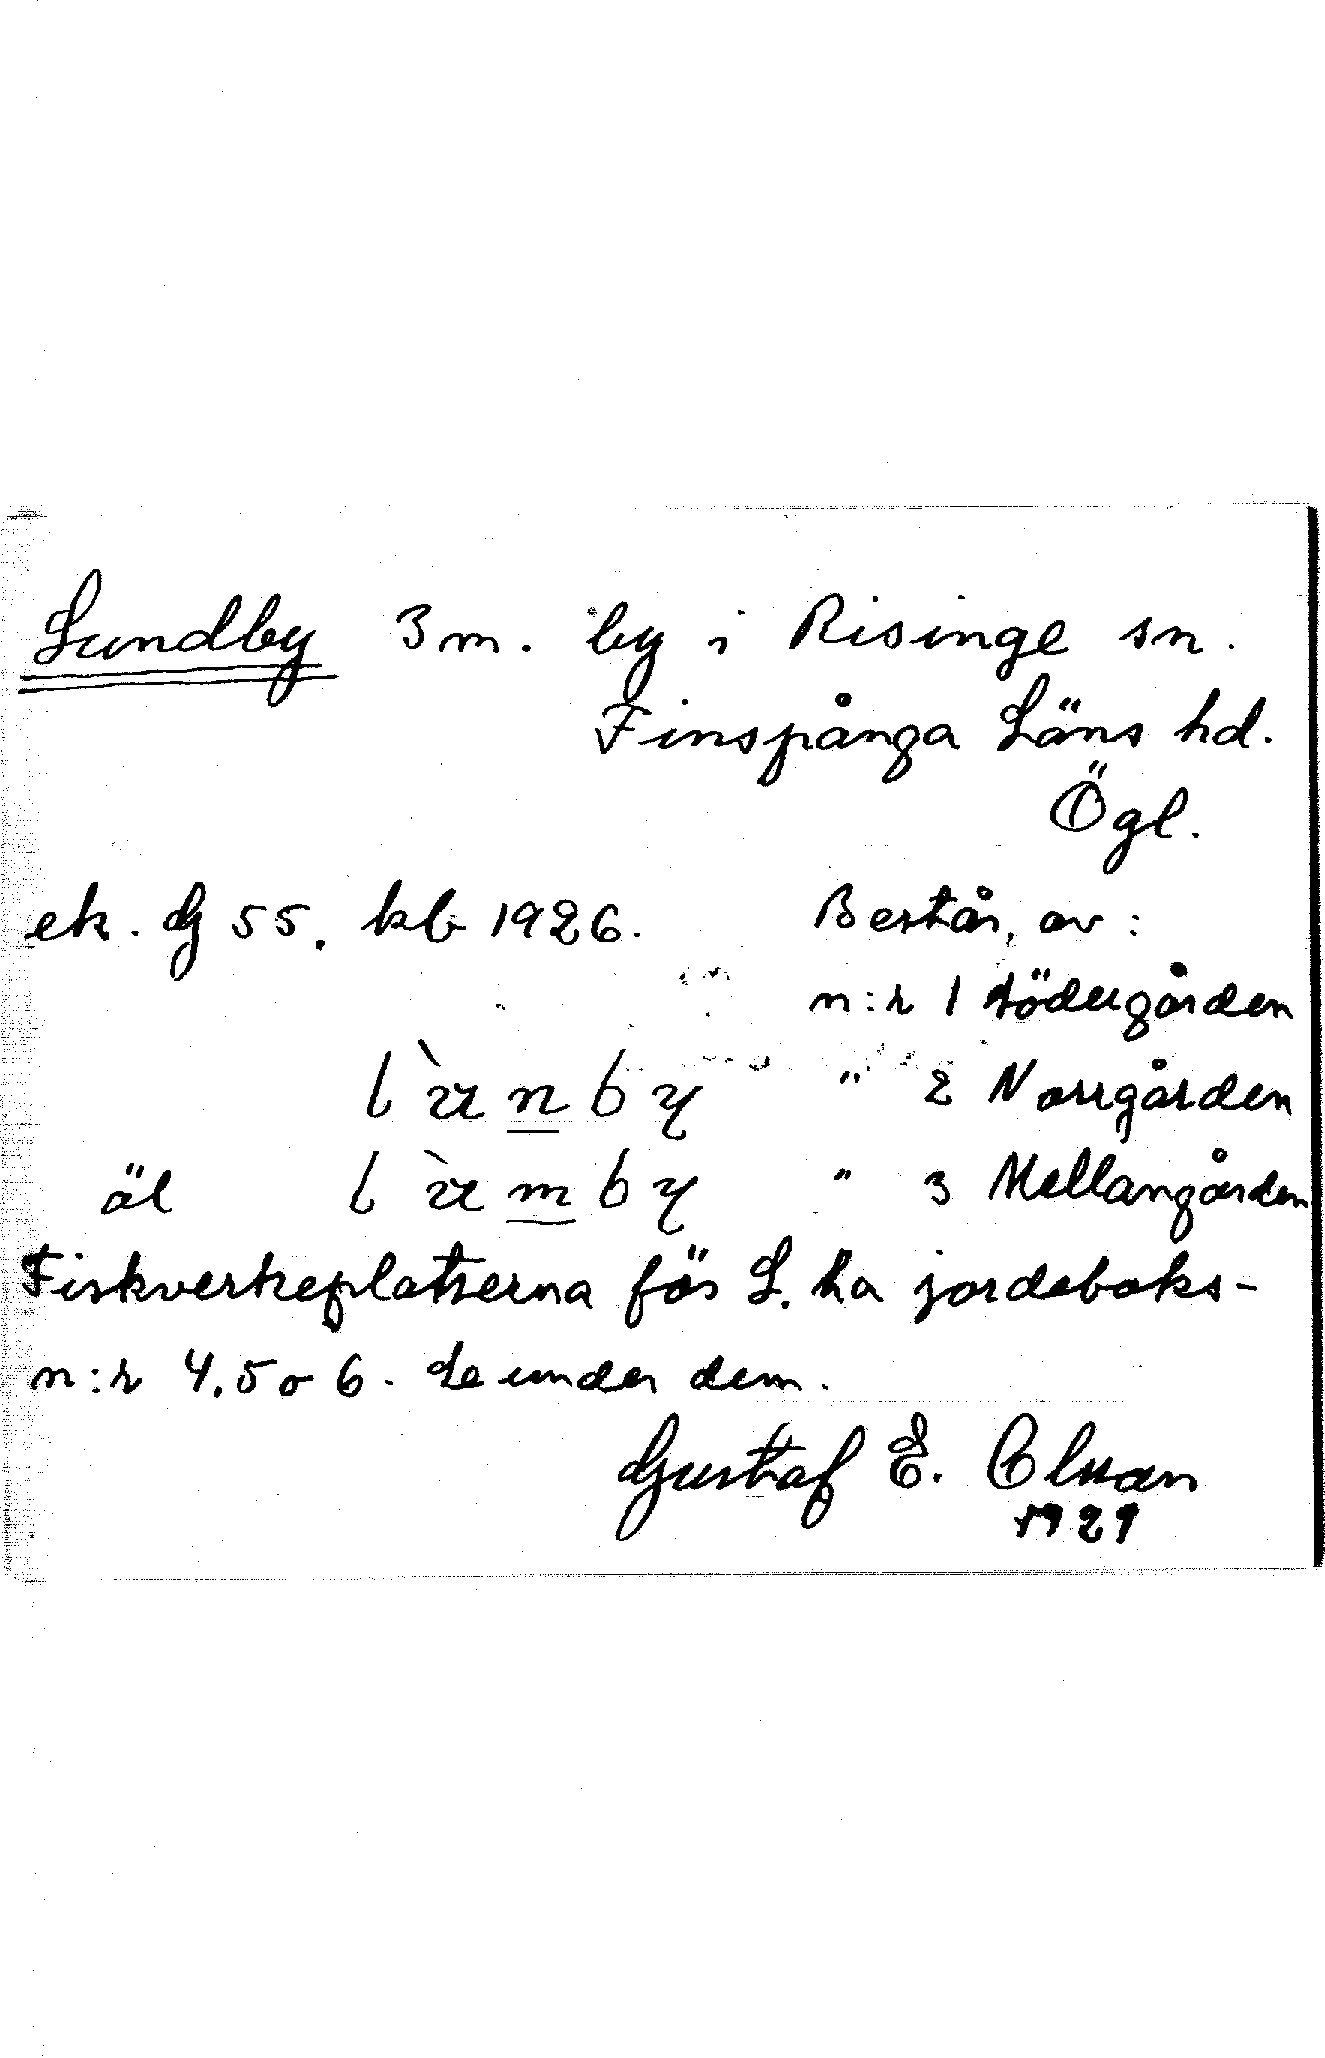 Lundby 3 m. by i Risinge sn.
Finspånga Läns hd.
Ögl.
ek. G 55. kb 1926. Består, av:
n:r 1 Södergården
lùnby " 2 Norrgården
äl lùmby " 3 Mellangården
Fiskverkeplatserna för L. ha jordeboks-
n:r 4.5 o 6. Se under dem.
Gustaf E.
1929